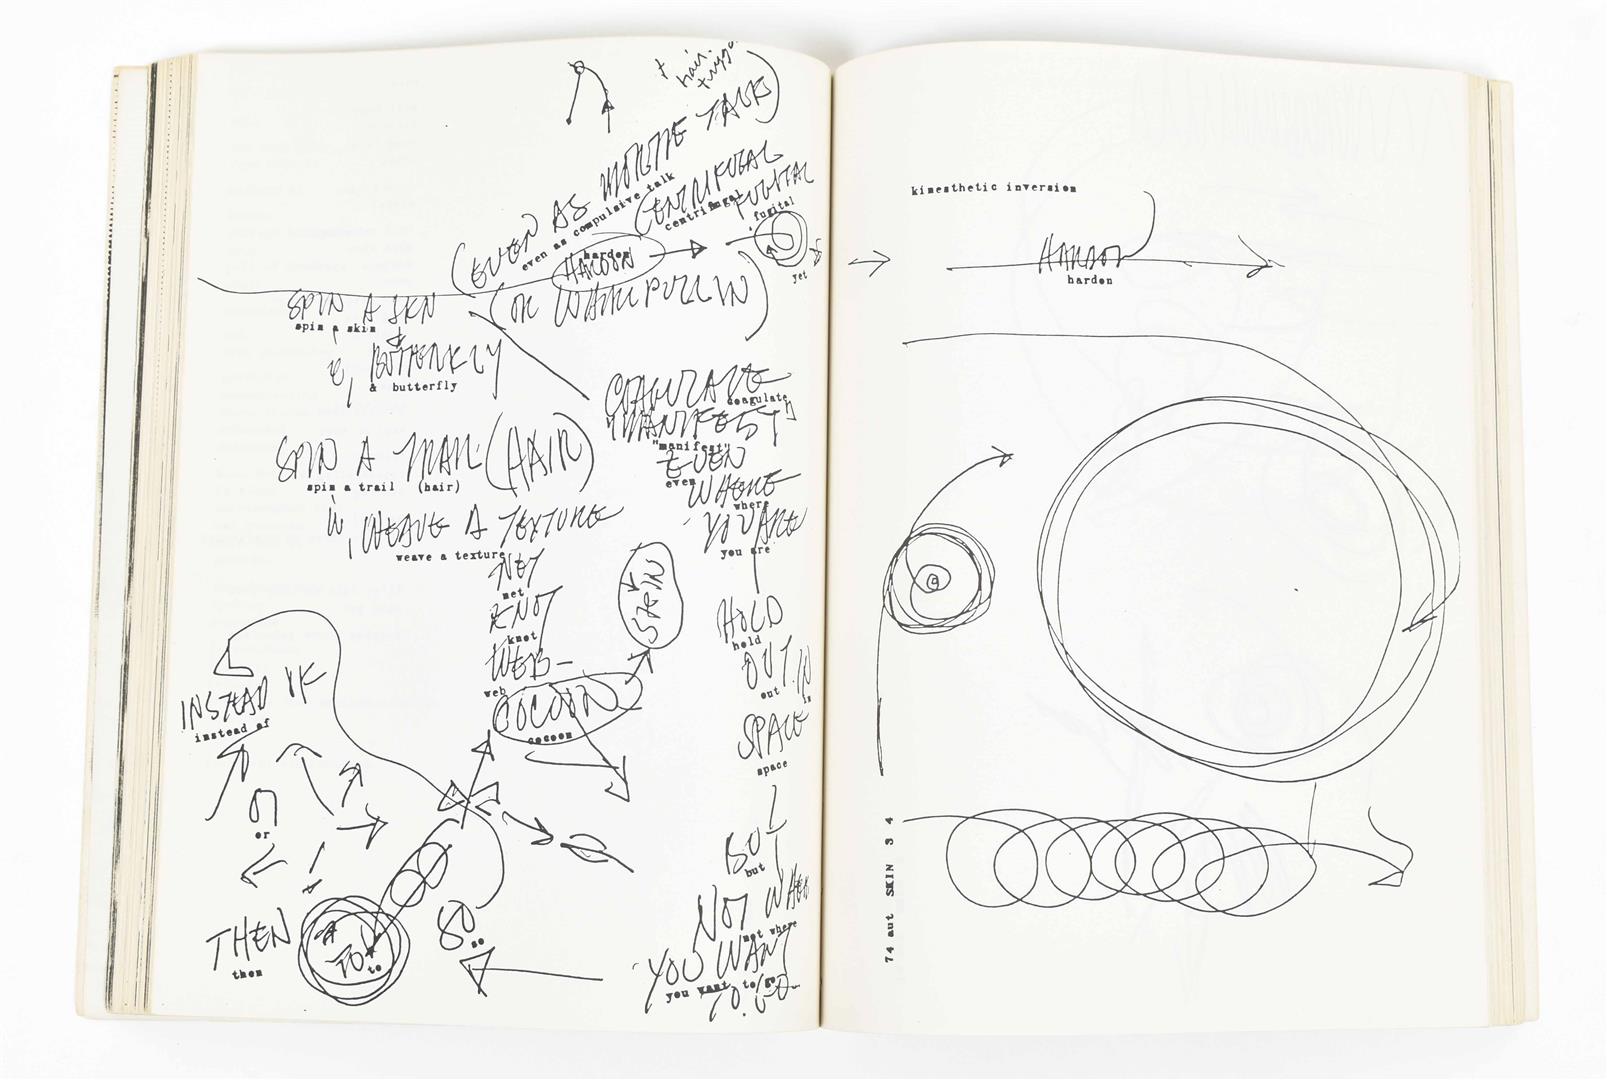 + hair.
(EVEN AS MORTTE TALK)
even as compulsive talk
(CENTRIFUGAL
centrifugal
FUGITAL
fugital
HARDON
harden
yet
SPIN A SKIN
spin a skin
(OR WHIRLPOOL IN)
&
BUTTERFLY
& butterfly
COAGULATE
coagulate
"MANIFEST"
"manifest"
SPIN A TRAIL (HAIR)
spin a trail (hair)
EVEN
even
WHERE
where
WEAVE A TEXTURE
weave a texture
YOU ARE
you are
NET
net
KNOT
knot
WEB-
web
COCOON
cocoon
SPIN
HOLD
hold
OUT IN
out in
SPACE
space
INSTEAD OF
instead of
or
BUT
but
NOT WHERE
not where
YOU WANT
you want to go
TO GO-
THEN
then
TO
to
SO
so
kinesthetic inversion
HARDON
harden
74 aut SKIN 3 4